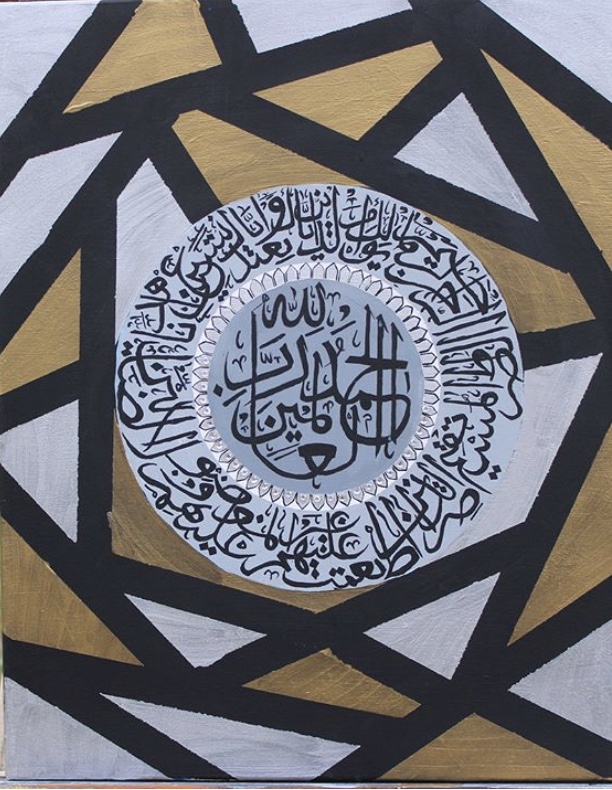 الحمد لله رب العلمين
الرحمن الرحيم ملك يوم الدين اياك نعبد واياك نستعين اهدنا
الصراط المستقيم صراط الذين انعمت عليهم غير المغضوب عليهم ولا الضالين